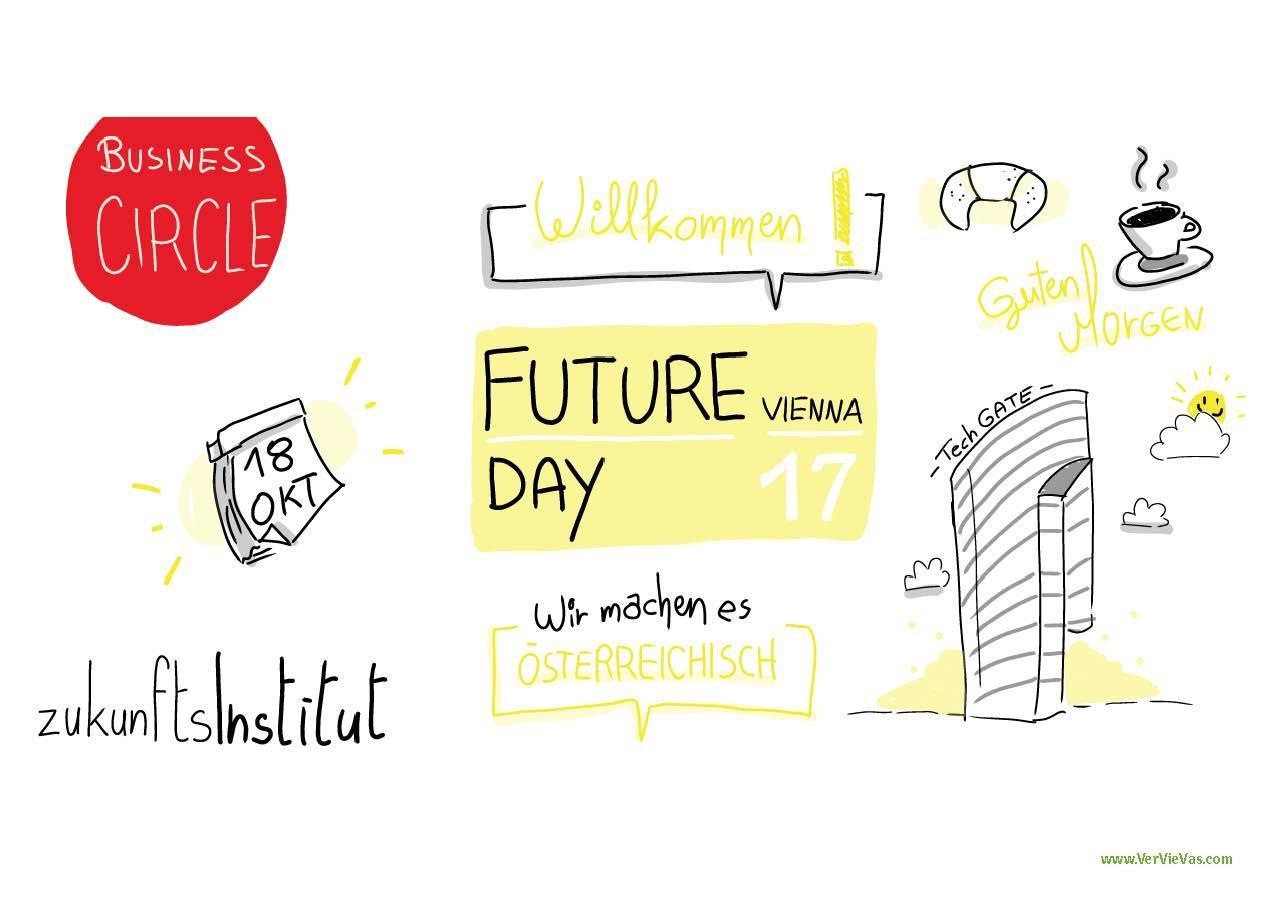 BUSINESS
CIRCLE
18
OKT
zukunftsInstitut
Willkommen!
FUTURE VIENNA
DAY 17
Wir machen es
ÖSTERREICHISCH
Guten
MOrGEN
-Tech GATE-
www.VerVieVas.com